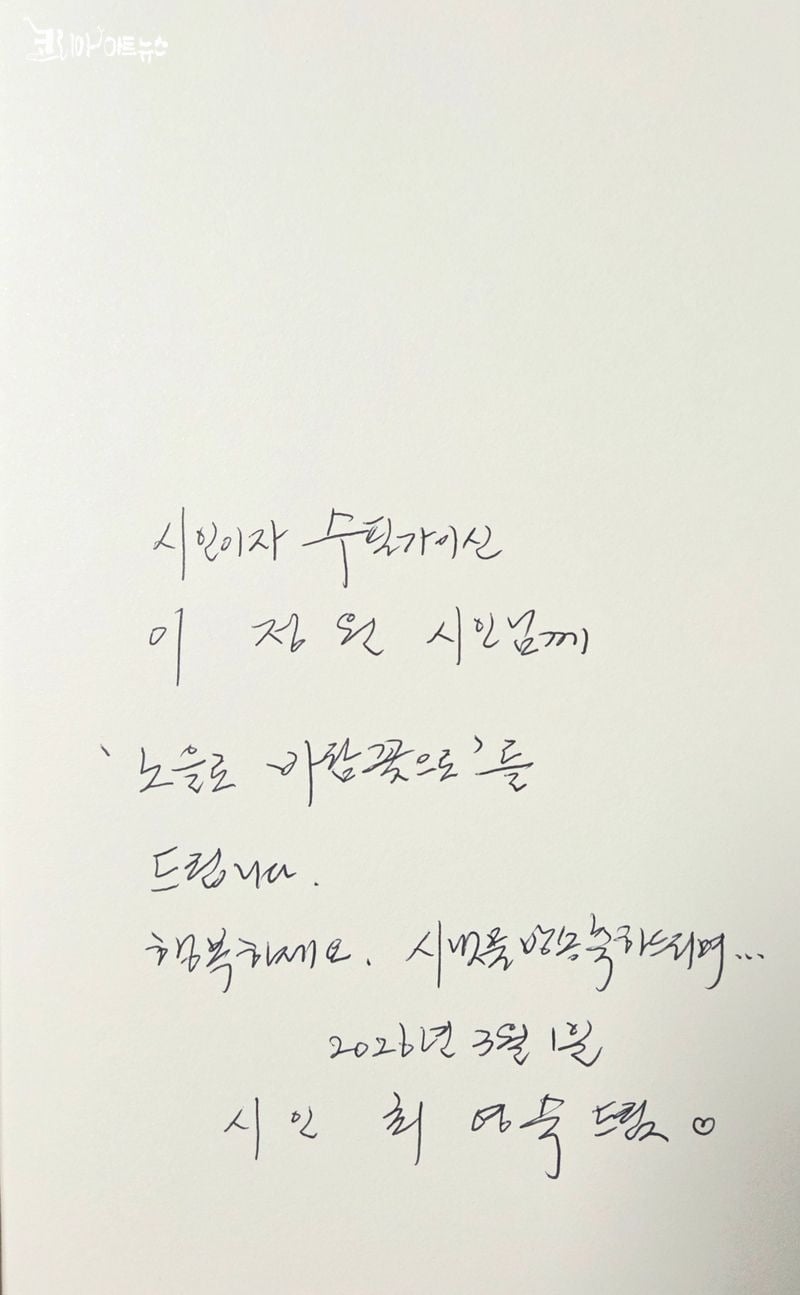 코리아아트뉴스
시인이자 수필가이신
이 정원 시인님께
'노을로 바람꽃으로'를
드립니다.
행복하세요. 축하드리며...
2026년 3월 1일
시인 최 영숙 드림 ♡